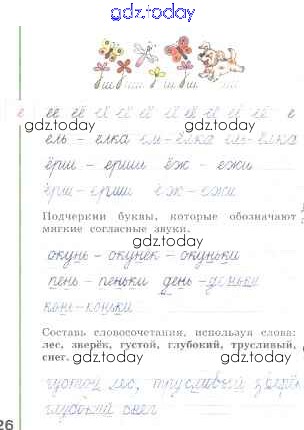 gdz.today
её её ёё ёё ёё ёё ёё ёё ё
gdz.today gdz.today
ель – ёлка ель – ёлка
ёрш – ерши ёж – ежи
ёрш – ерши ёж – ежи
Подчеркни буквы, которые обозначают
мягкие согласные звуки.
gdz.today
окунь – окунёк – окуньки
gdz.today gdz.today
пень – пеньки день – деньки
конь – коньки
gdz.today
Составь словосочетания, используя слова:
лес, зверёк, густой, глубокий, трусливый,
снег.
gdz.today gdz.today
густой лес, трусливый зверёк
глубокий снег
26
gdz.today